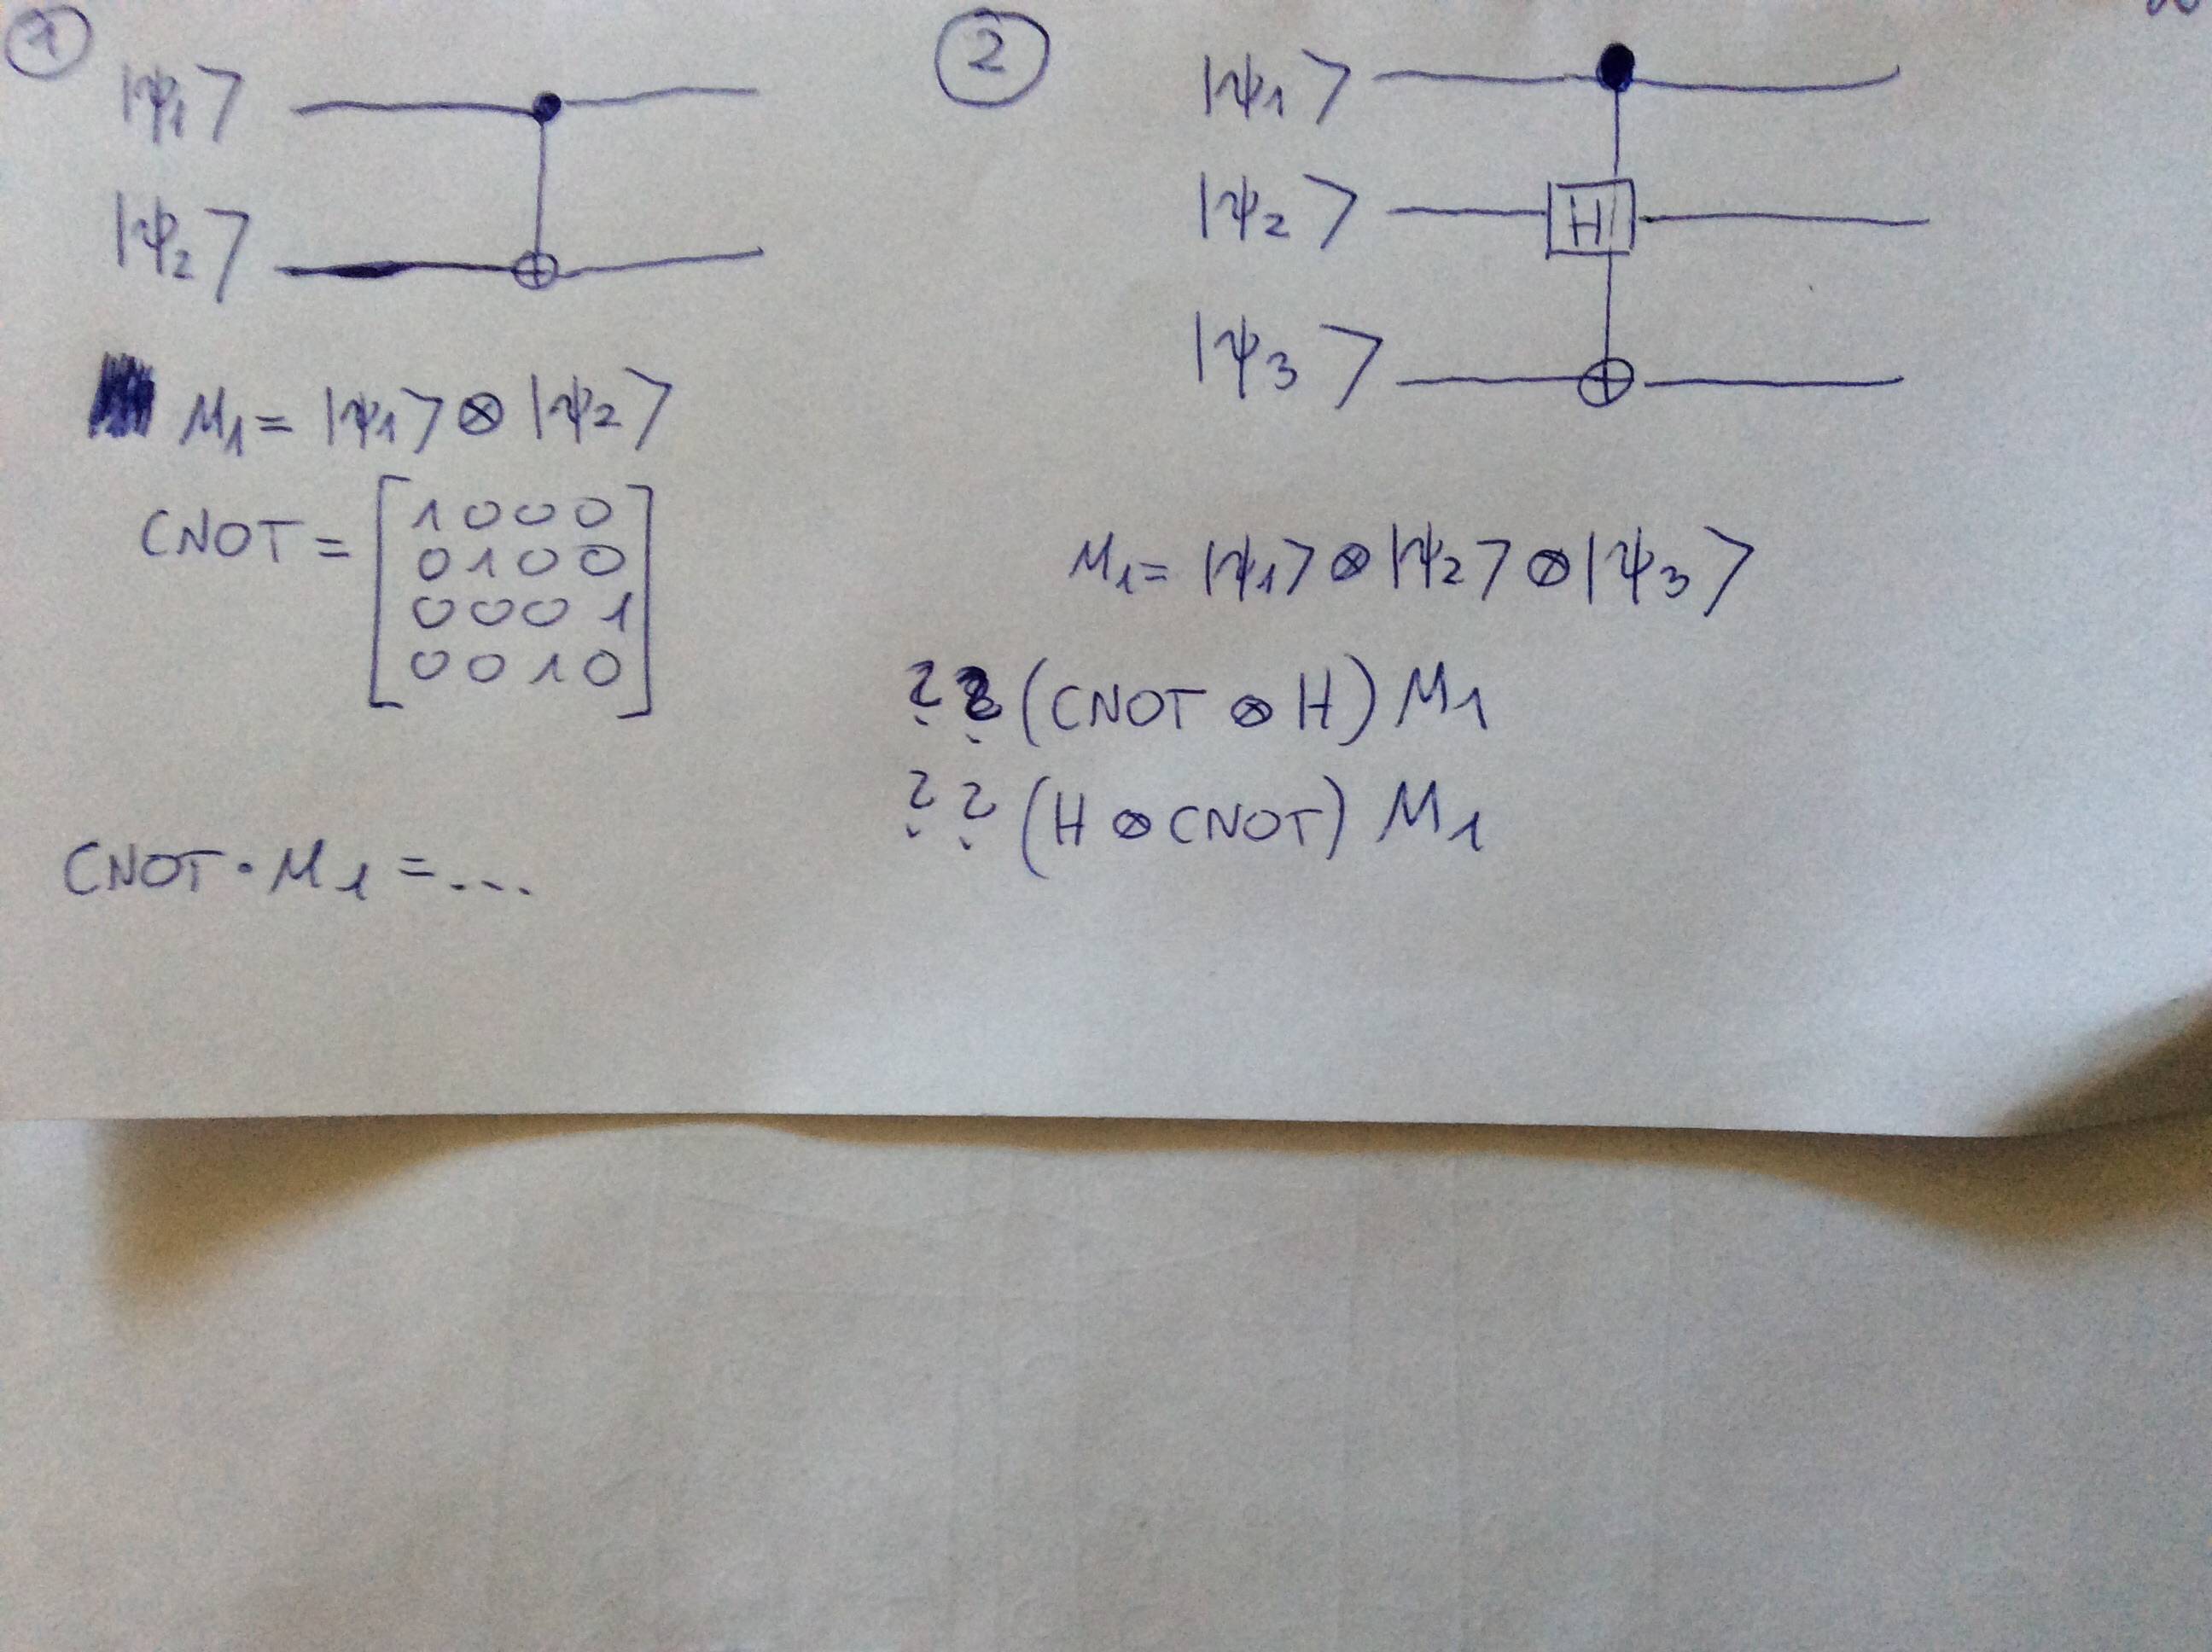 1
|ψ1>
|ψ2>
M1 = |ψ1> ⊗ |ψ2>
CNOT = [1 0 0 0
0 1 0 0
0 0 0 1
0 0 1 0]
CNOT · M1 = ...
2
|ψ1>
|ψ2>
H
|ψ3>
M1 = |ψ1> ⊗ |ψ2> ⊗ |ψ3>
?? (CNOT ⊗ H) M1
?? (H ⊗ CNOT) M1